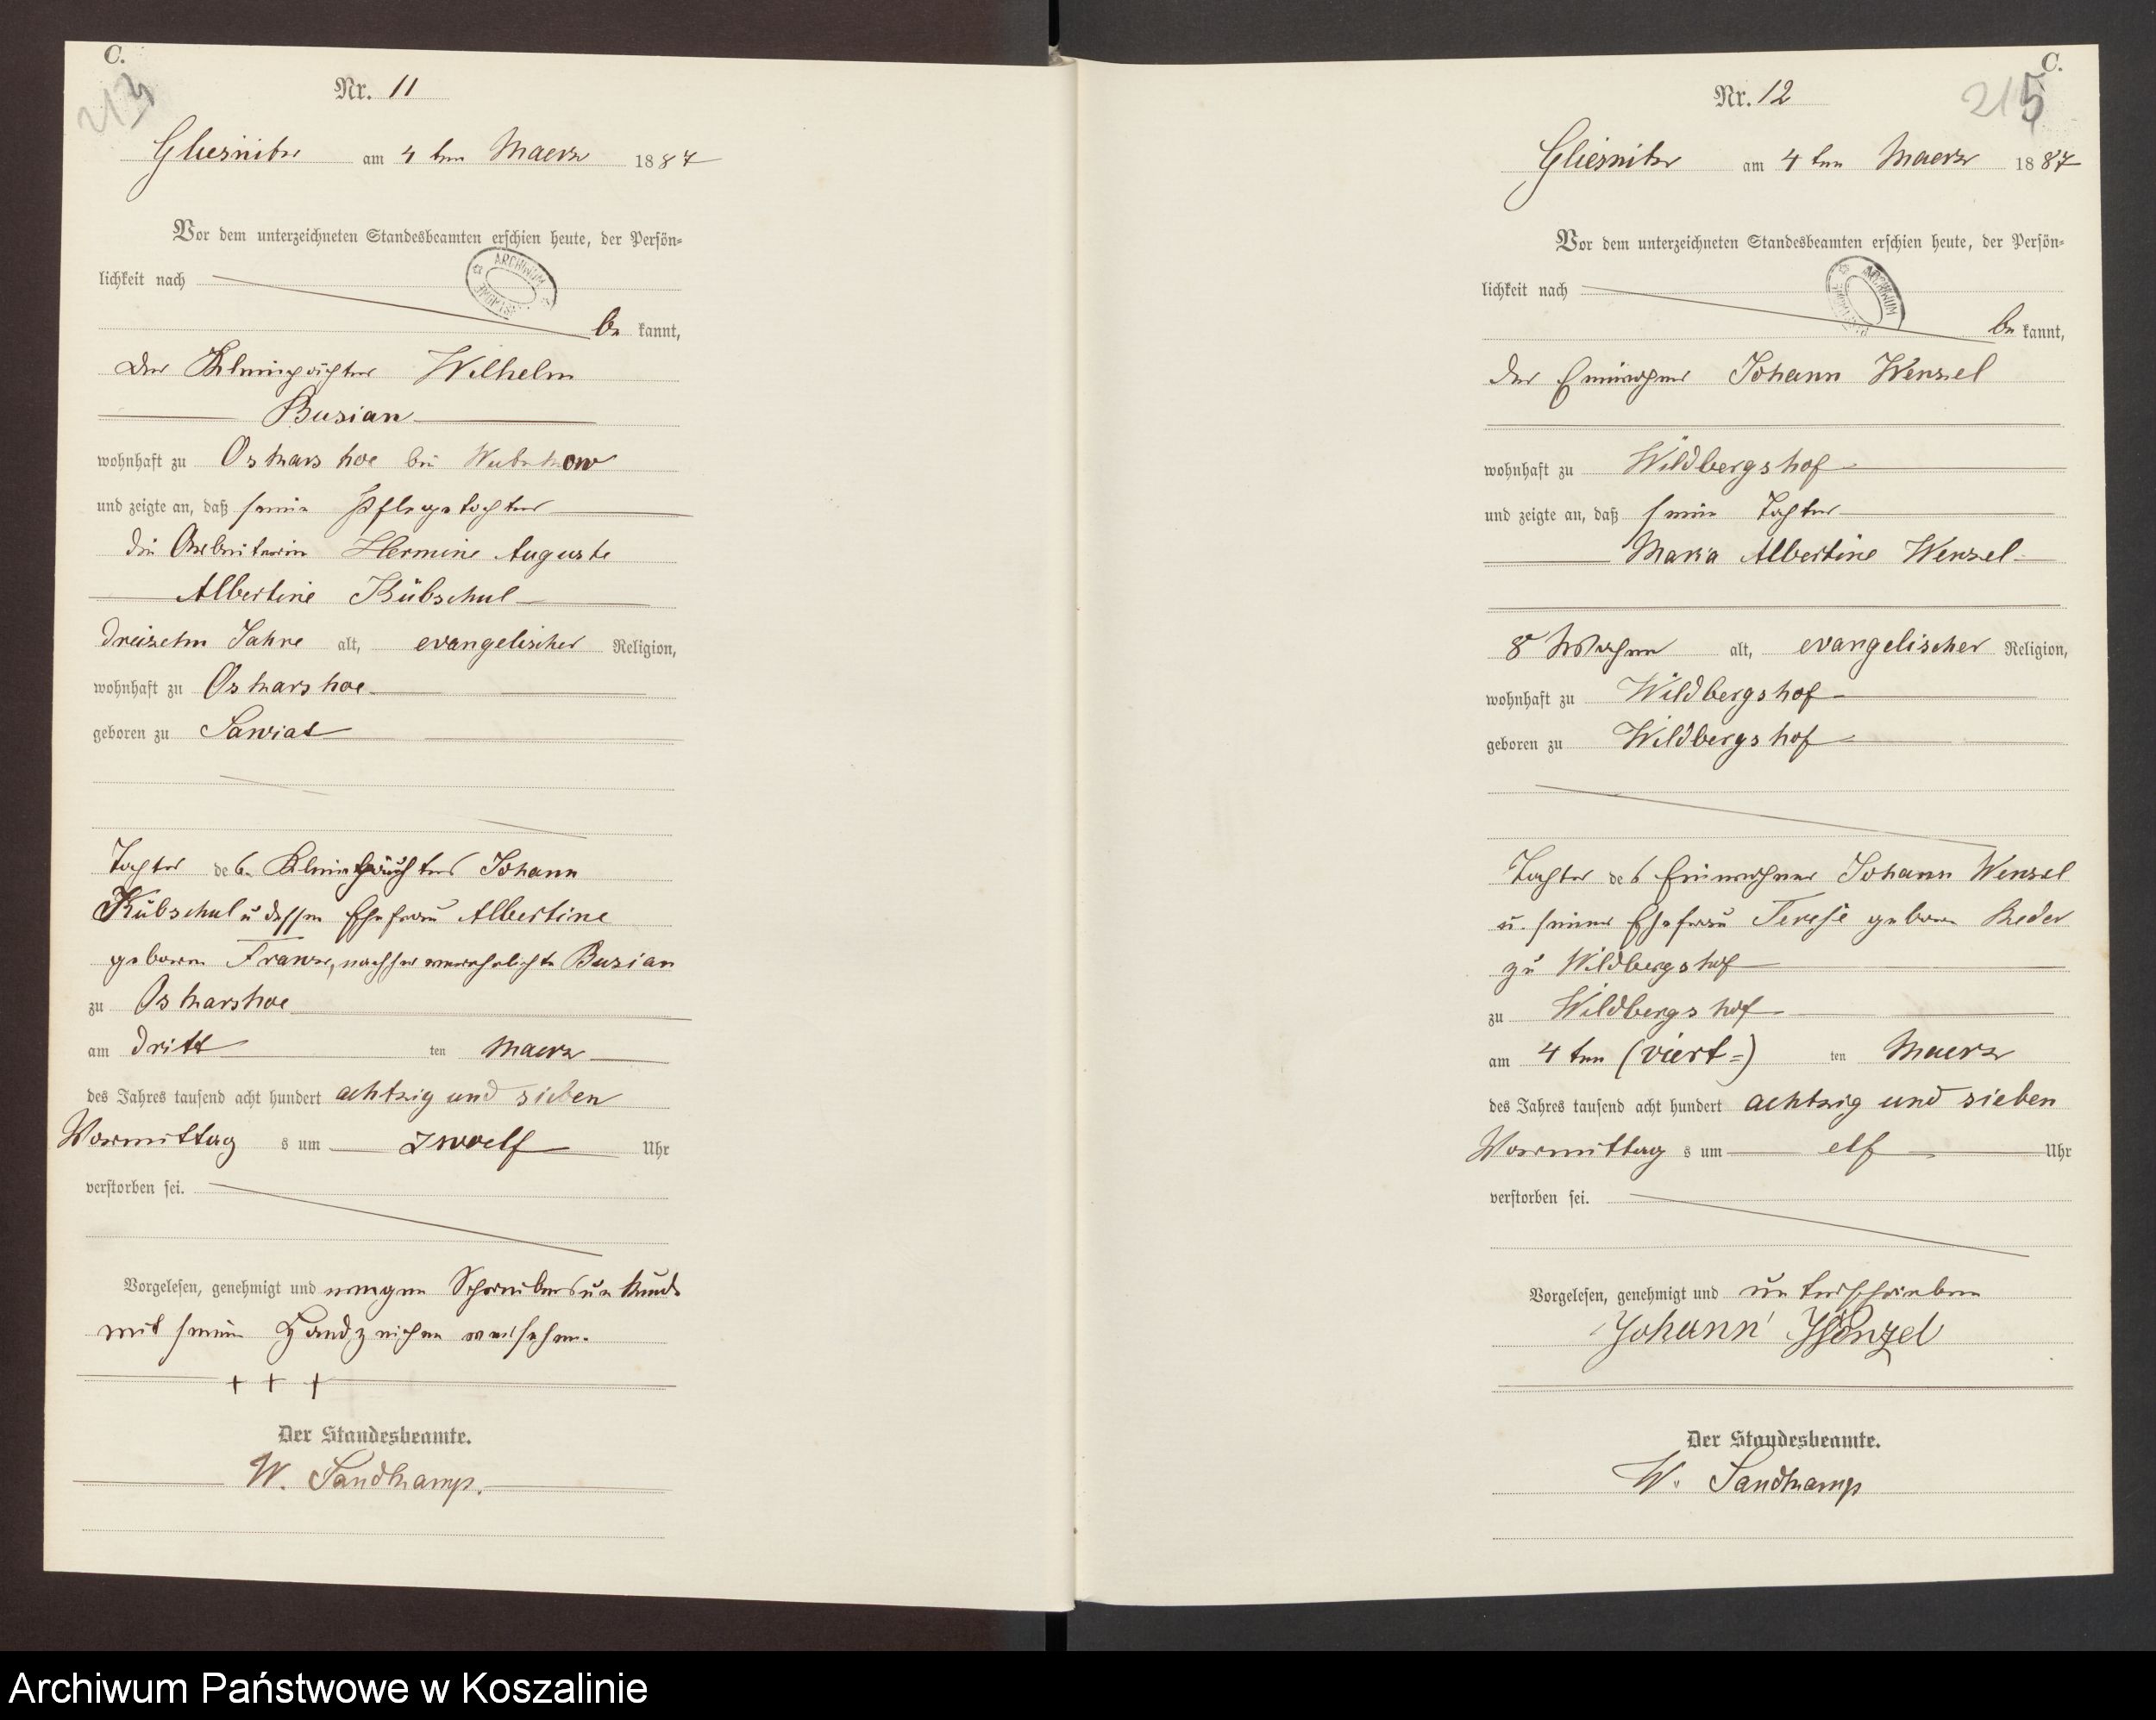 C.
213
Nr. 11
Gliesnitz am 4 ten Maerz 1887
Vor dem unterzeichneten Standesbeamten erschien heute, der Persön-
lichkeit nach
ARCHIWUM
be kannt,
der Kleinpächter Wilhelm
Busian
wohnhaft zu Oskarshoe bei
und zeigte an, daß seine Pflegetochter
die Arbeiterin Hermine Auguste
Albertine Kübschul
dreizehn Jahre alt, evangelischer Religion,
wohnhaft zu Oskarshoe
geboren zu Sawiat
Tochter des Kleinpächters Johann
Kübschul u dessen Ehefrau Albertine
geboren Franz, nachher verehelichte Busian
zu Oskarshoe
am dritt ten Maerz
des Jahres tausend acht hundert achtzig und sieben
Vormittag s um zwoelf Uhr
verstorben sei.
Vorgelesen, genehmigt und wegen Schreibensunkunde
mit seinem Handzeichen versehen.
+ + +
Der Standesbeamte.
W. Sandkamp.
C.
215
Nr. 12
Gliesnitz am 4 ten Maerz 1887
Vor dem unterzeichneten Standesbeamten erschien heute, der Persön-
lichkeit nach
ARCHIWUM
be kannt,
der Einwohner Johann Wenzel
wohnhaft zu Wildbergshof
und zeigte an, daß seine Tochter
Maria Albertine Wenzel
8 Wochen alt, evangelischer Religion,
wohnhaft zu Wildbergshof
geboren zu Wildbergshof
Tochter des Einwohner Johann Wenzel
u. seiner Ehefrau Terese geboren Reder
zu Wildbergshof
zu Wildbergshof
am 4 ten (viert=) ten Maerz
des Jahres tausend acht hundert achtzig und sieben
Vormittag s um elf Uhr
verstorben sei.
Vorgelesen, genehmigt und unterschrieben
Johann Wenzel
Der Standesbeamte.
W. Sandkamp
Archiwum Państwowe w Koszalinie